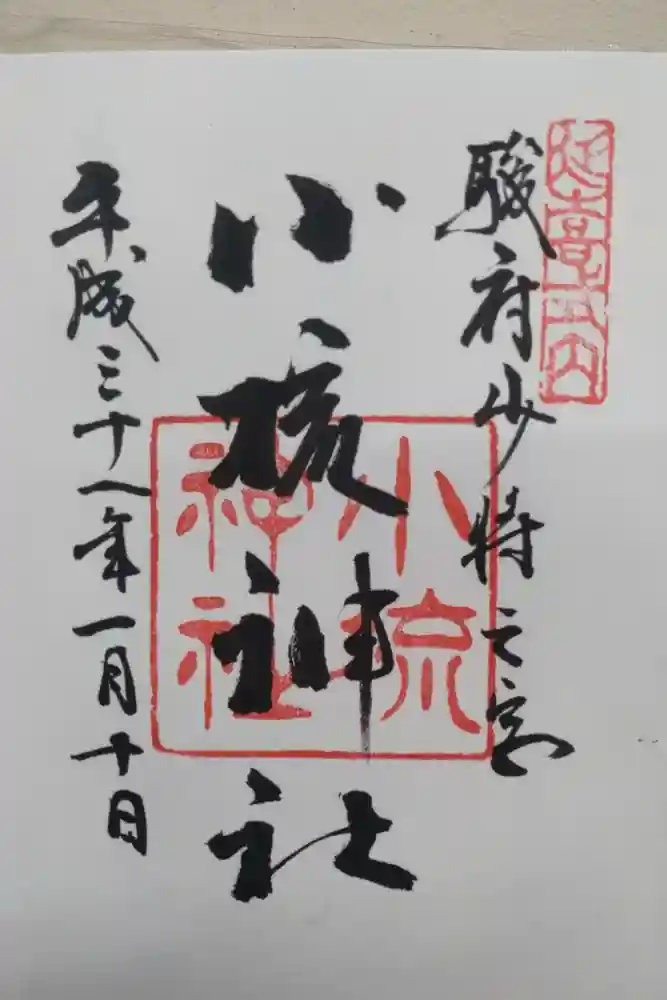 延喜式内
駿府少将之宮
小梳神社
小梳神社
平成二十八年一月十日